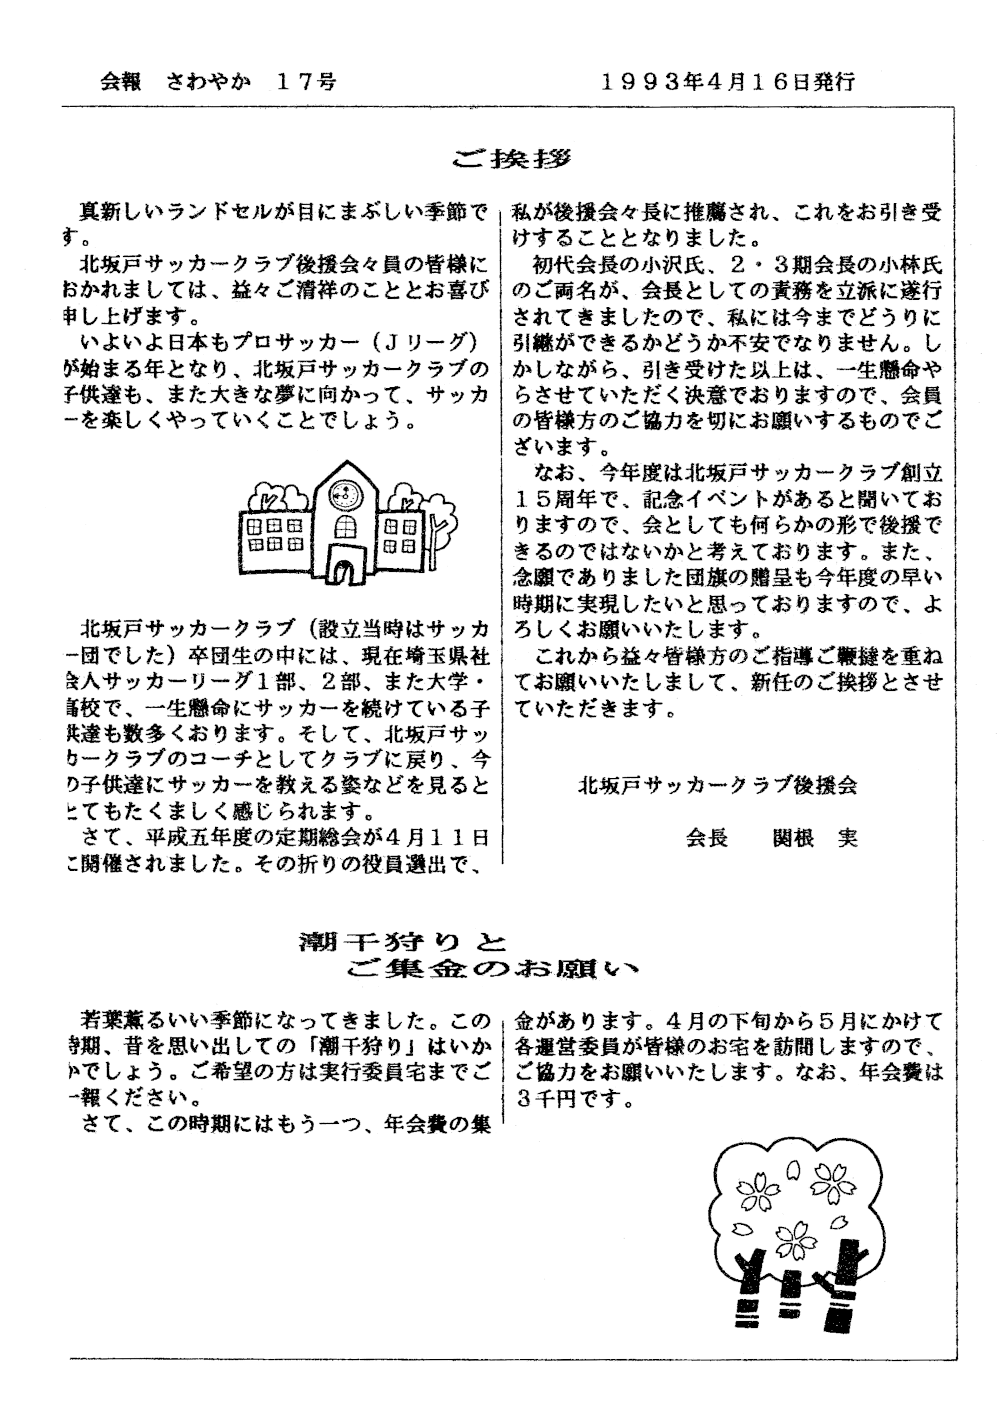 会報　さわやか　１７号
１９９３年４月１６日発行
ご挨拶
真新しいランドセルが目にまぶしい季節で
す。
北坂戸サッカークラブ後援会々員の皆様に
おかれましては、益々ご清祥のこととお喜び
申し上げます。
いよいよ日本もプロサッカー（Ｊリーグ）
が始まる年となり、北坂戸サッカークラブの
子供達も、また大きな夢に向かって、サッカ
ーを楽しくやっていくことでしょう。
北坂戸サッカークラブ（設立当時はサッカ
ー団でした）卒団生の中には、現在埼玉県社
会人サッカーリーグ１部、２部、また大学・
高校で、一生懸命にサッカーを続けている子
供達も数多くおります。そして、北坂戸サッ
カークラブのコーチとしてクラブに戻り、今
の子供達にサッカーを教える姿などを見ると
とてもたくましく感じられます。
さて、平成五年度の定期総会が４月１１日
に開催されました。その折りの役員選出で、
私が後援会々長に推薦され、これをお引き受
けすることとなりました。
初代会長の小沢氏、２・３期会長の小林氏
のご両名が、会長としての責務を立派に遂行
されてきましたので、私には今までどうりに
引継ができるかどうか不安でなりません。し
かしながら、引き受けた以上は、一生懸命や
らさせていただく決意でおりますので、会員
の皆様方のご協力を切にお願いするものでご
ざいます。
なお、今年度は北坂戸サッカークラブ創立
１５周年で、記念イベントがあると聞いてお
りますので、会としても何らかの形で後援で
きるのではないかと考えております。また、
念願でありました団旗の贈呈も今年度の早い
時期に実現したいと思っておりますので、よ
ろしくお願いいたします。
これから益々皆様方のご指導ご鞭撻を重ね
てお願いいたしまして、新任のご挨拶とさせ
ていただきます。
北坂戸サッカークラブ後援会
会長　関根　実
潮干狩りと
ご集金のお願い
若葉薫るいい季節になってきました。この
時期、昔を思い出しての「潮干狩り」はいか
がでしょう。ご希望の方は実行委員宅までご
一報ください。
さて、この時期にはもう一つ、年会費の集
金があります。４月の下旬から５月にかけて
各運営委員が皆様のお宅を訪問しますので、
ご協力をお願いいたします。なお、年会費は
３千円です。